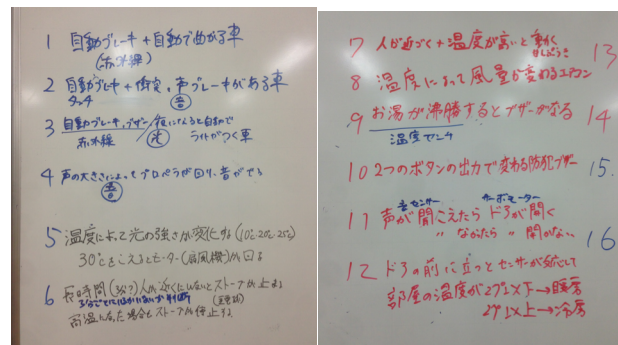 1 自動ブレーキ+自動で曲がる車
(赤外線)
2 自動ブレーキ+衝突、声ブレーキがある車
タッチ 音
3 自動ブレーキ、ブザー/夜になると自動で
赤外線 光 ライトがつく車
4 声の大きさによってプロペラが回り、音がでる
音
5 温度によって光の強さが変化する(10℃20℃25℃)
30℃をこえるとモーター(扇風機)が回る
6 長時間(3分?)人が近くにいないとストーブが止まる
高温になった場合もストーブが停止する
7 人が近づく+温度が高いと動く
せんぷうき
8 温度によって風量が変わるエアコン
9 お湯が沸騰するとブザーがなる
温度センサ
10 2つのボタンの出力で変わる防犯ブザー
音センサー サーボモーター
11 声が聞こえたらドアが開く
〃 なかったら 〃 開かない
12 ドアの前に立つとセンサーが反応して
部屋の温度が27°以下→暖房
27°以上→冷房
13
14
15.
16